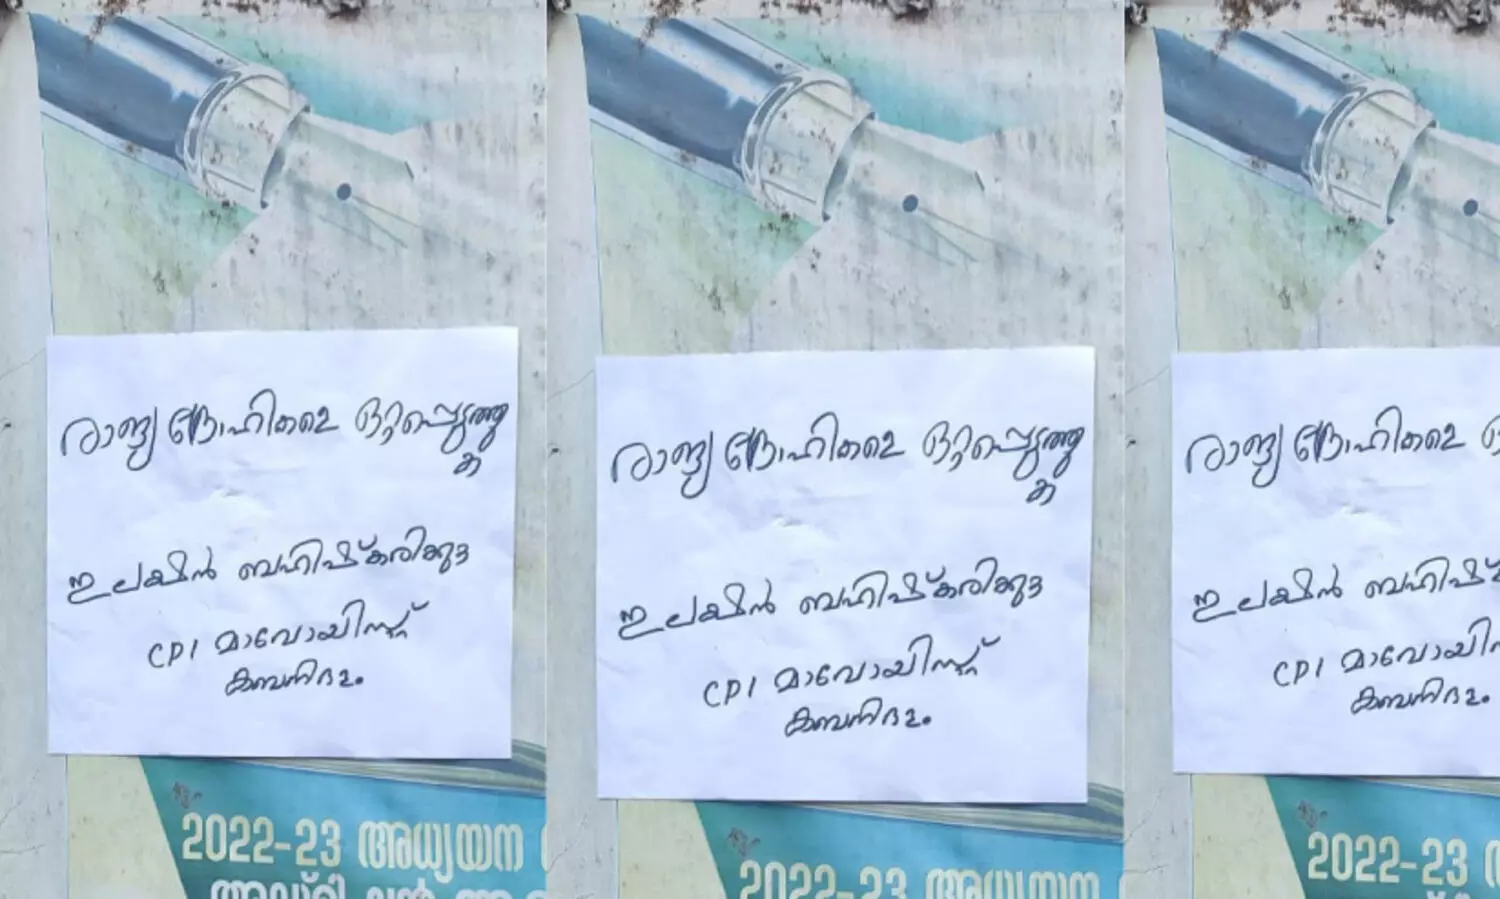 രാജ്യ ദ്രോഹികളെ ഒറ്റപ്പെടുത്തു
ക
ഇലക്ഷൻ ബഹിഷ്കരിക്കുക
CPI മാവോയിസ്റ്റ്
കബനിദളം
2022-23 അധ്യയന
അഡ്മിഷൻ
രാജ്യ ദ്രോഹികളെ ഒറ്റപ്പെടുത്തു
ക
ഇലക്ഷൻ ബഹിഷ്കരിക്കുക
CPI മാവോയിസ്റ്റ്
കബനിദളം
2022-23 അധ്യയന
രാജ്യ ദ്രോഹികളെ
ഇലക്ഷൻ
CPI
കബനിദളം
2022-23